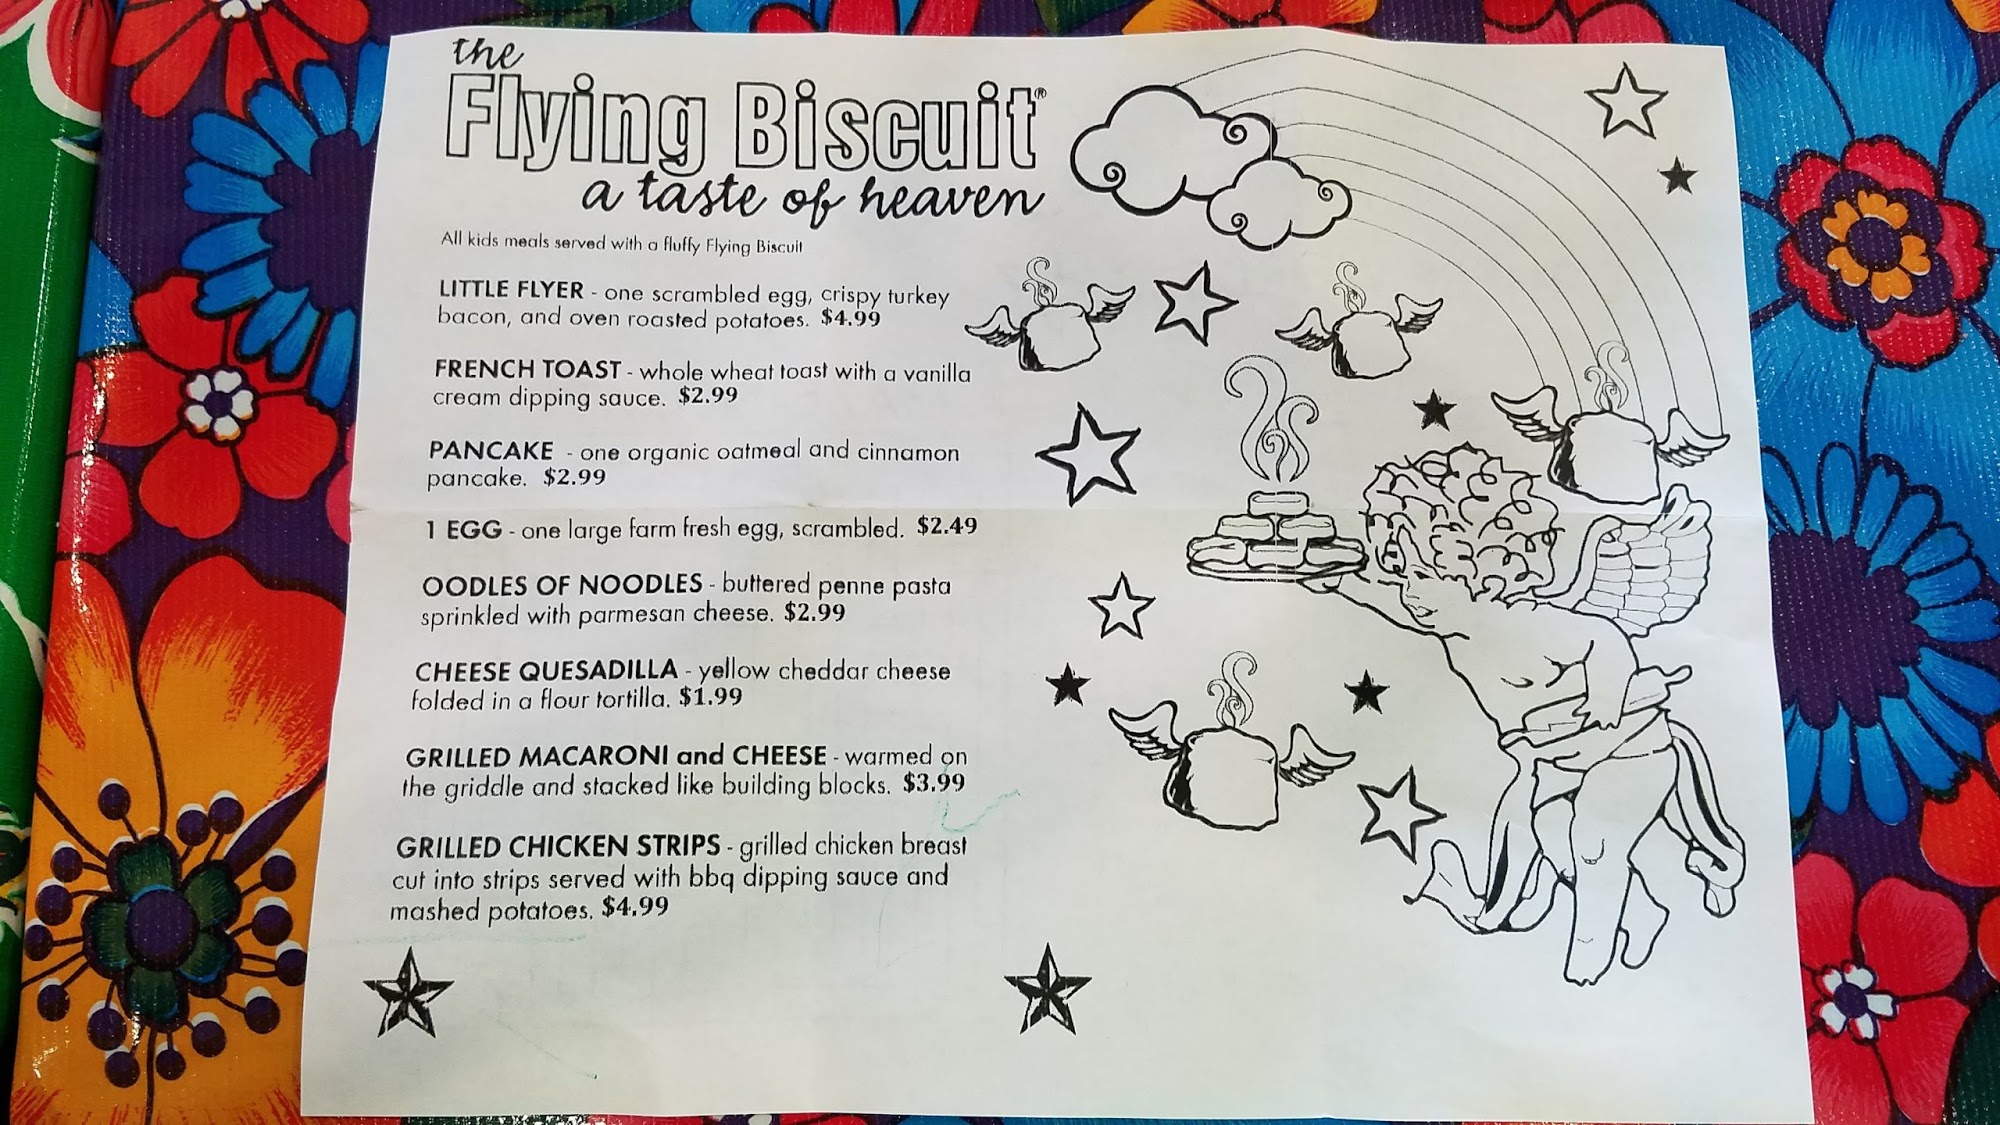 the
Flying Biscuit®
a taste of heaven
All kids meals served with a fluffy Flying Biscuit
LITTLE FLYER - one scrambled egg, crispy turkey
bacon, and oven roasted potatoes. $4.99
FRENCH TOAST - whole wheat toast with a vanilla
cream dipping sauce. $2.99
PANCAKE - one organic oatmeal and cinnamon
pancake. $2.99
1 EGG - one large farm fresh egg, scrambled. $2.49
OODLES OF NOODLES - buttered penne pasta
sprinkled with parmesan cheese. $2.99
CHEESE QUESADILLA - yellow cheddar cheese
folded in a flour tortilla. $1.99
GRILLED MACARONI and CHEESE - warmed on
the griddle and stacked like building blocks. $3.99
GRILLED CHICKEN STRIPS - grilled chicken breast
cut into strips served with bbq dipping sauce and
mashed potatoes. $4.99